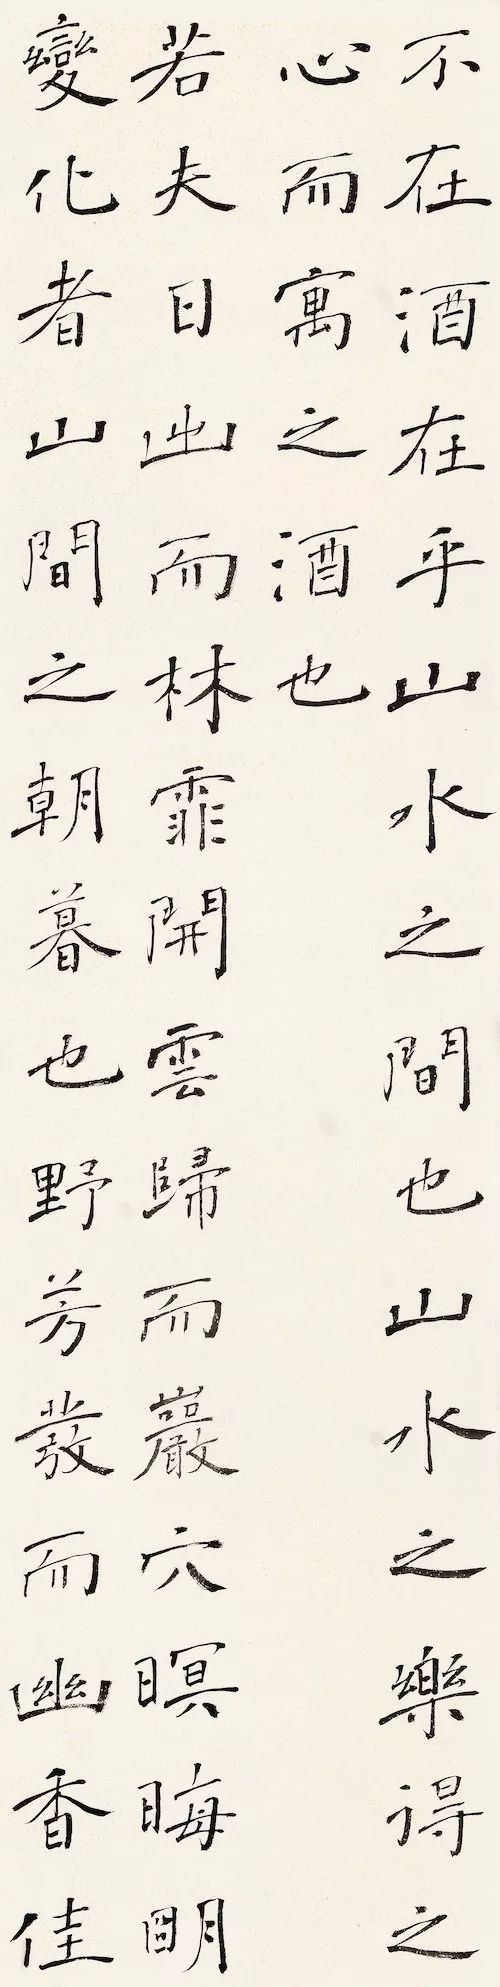 不在酒在乎山水之間也山水之樂得之
心而寓之酒也
若夫日出而林霏開雲歸而巖穴暝晦明
變化者山間之朝暮也野芳發而幽香佳